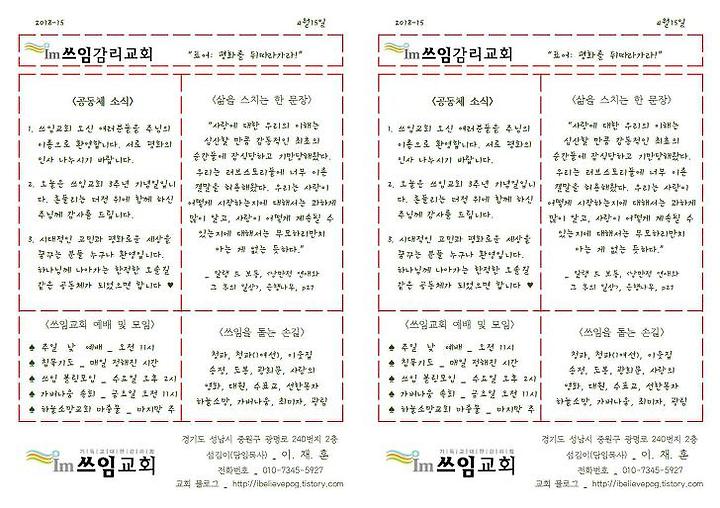 2018-15
4월15일
Im 쓰임감리교회
"표어: 평화를 뒤따라가라!"
<공동체 소식>
1. 쓰임교회 오신 여러분들을 주님의
이름으로 환영합니다. 서로 평화의
인사 나누시기 바랍니다.
2. 오늘은 쓰임교회 3주년 기념일입니
다. 흔들리는 터전 위에 함께 하신
주님께 감사를 드립니다.
3. 시대적인 고민과 평화로운 세상을
꿈꾸는 분들 누구나 환영합니다.
하나님께 나아가는 한적한 오솔길
같은 공동체가 되었으면 합니다 ♥
<삶을 스치는 한 문장>
"사랑에 대한 우리의 이해는
심산할 만큼 감동적인 최초의
순간들에 잠식당하고 기만당해왔다.
우리는 러브스토리들에 너무 이른
결말을 허용해왔다. 우리는 사랑이
어떻게 시작하는지에 대해서는 과하게
많이 알고, 사랑이 어떻게 계속될 수
있는지에 대해서는 무모하리만치
아는 게 없는 듯하다."
_ 알랭 드 보통, <낭만적 연애와
그 후의 일상>, 은행나무, p27
<쓰임교회 예배 및 모임>
♠ 주일 낮 예배 _ 오전 11시
♠ 침묵기도 _ 매일 정해진 시간
♠ 쓰임 불린모임 _ 수요일 오후 2시
♠ 가버나움 속회 _ 금요일 오전 11시
♠ 하늘소망교회 마중물 _ 마지막 주
<쓰임을 돕는 손길>
청파, 청파(1여선), 이웅집
순전, 도봉, 광희문, 사랑의
영화, 대원, 수표교, 선한목자
하늘소망, 가버나움, 최미자, 광림
기독교대한감리회
Im 쓰임교회
경기도 성남시 중원구 광명로 240번지 2층
섬김이(담임목사) _ 이. 재. 훈
전화번호 _ 010-7345-5927
교회 블로그 _ http://ibelievepog.tistory.com
2018-15
4월15일
Im 쓰임감리교회
"표어: 평화를 뒤따라가라!"
<공동체 소식>
1. 쓰임교회 오신 여러분들을 주님의
이름으로 환영합니다. 서로 평화의
인사 나누시기 바랍니다.
2. 오늘은 쓰임교회 3주년 기념일입니
다. 흔들리는 터전 위에 함께 하신
주님께 감사를 드립니다.
3. 시대적인 고민과 평화로운 세상을
꿈꾸는 분들 누구나 환영합니다.
하나님께 나아가는 한적한 오솔길
같은 공동체가 되었으면 합니다 ♥
<삶을 스치는 한 문장>
"사랑에 대한 우리의 이해는
심산할 만큼 감동적인 최초의
순간들에 잠식당하고 기만당해왔다.
우리는 러브스토리들에 너무 이른
결말을 허용해왔다. 우리는 사랑이
어떻게 시작하는지에 대해서는 과하게
많이 알고, 사랑이 어떻게 계속될 수
있는지에 대해서는 무모하리만치
아는 게 없는 듯하다."
_ 알랭 드 보통, <낭만적 연애와
그 후의 일상>, 은행나무, p27
<쓰임교회 예배 및 모임>
♠ 주일 낮 예배 _ 오전 11시
♠ 침묵기도 _ 매일 정해진 시간
♠ 쓰임 불린모임 _ 수요일 오후 2시
♠ 가버나움 속회 _ 금요일 오전 11시
♠ 하늘소망교회 마중물 _ 마지막 주
<쓰임을 돕는 손길>
청파, 청파(1여선), 이웅집
순전, 도봉, 광희문, 사랑의
영화, 대원, 수표교, 선한목자
하늘소망, 가버나움, 최미자, 광림
기독교대한감리회
Im 쓰임교회
경기도 성남시 중원구 광명로 240번지 2층
섬김이(담임목사) _ 이. 재. 훈
전화번호 _ 010-7345-5927
교회 블로그 _ http://ibelievepog.tistory.com